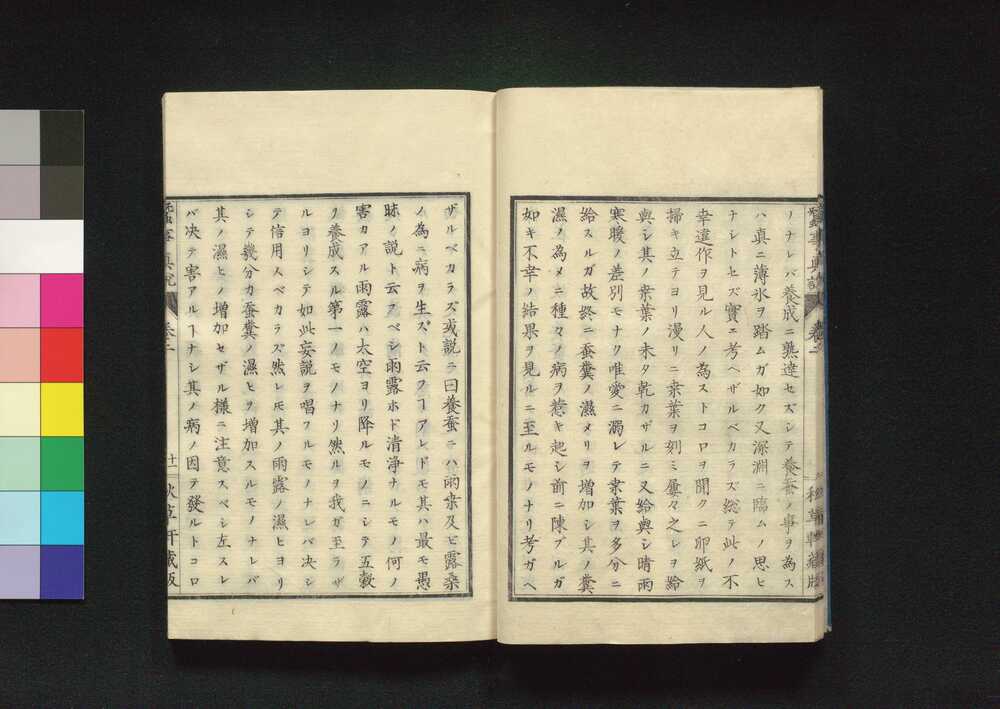 ノナレバ養成ニ熟達セズシテ養蚕ノ事ヲ為ス
ハ真ニ薄氷ヲ踏ムガ如ク又深淵ニ臨ムノ思ヒ
ナシトセズ實ニ考ヘザルベカラズ総テ此ノ不
幸違作ヲ見ル人ノ為ストコロヲ聞クニ卵紙ヲ
掃キ立テヨリ漫リニ桒葉ヲ刻ミ屢々之レヲ給
與シ其ノ桒葉ノ未タ乾カザルニ又給與シ晴雨
寒暖ノ差別モナク唯愛ニ溺レテ桒葉ヲ多分ニ
給スルガ故終ニ蚕糞ノ濕メリヲ增加シ其ノ糞
濕ノ為メニ種々ノ病ヲ惹キ起シ前ニ陳ブルガ
如キ不幸ノ結果ヲ見ルニ至ルモノナリ考ガヘ
ザルベカラズ或説ニ曰養蚕ニハ雨桒及ビ露桑
ノ為ニ病ヲ生ズト云フヿアレドモ其ハ最モ愚
昧ノ説ト云フベシ雨露ホド清浄ナルモノ何ノ
害カアル雨露ハ太空ヨリ降ルモノニシテ五穀
ヲ養成スル第一ノモノナリ然ルヲ我ガ至ラザ
ルヨリシテ如此妄説ヲ唱フルモノナレバ决シ
テ信用スベカラズ然レ𪜈其ノ雨露ノ濕ヒヨリ
シテ幾分カ蚕糞ノ濕ヒヲ增加スルモノナレバ
其ノ濕ヒノ增加セザル様ニ注意スベシ左スレ
バ决テ害アルヿナシ其ノ病ノ因テ發ルトコロ
卷二
十一